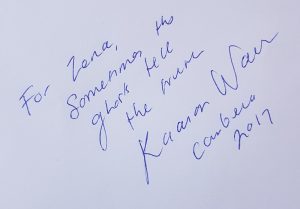 For Zena,
Sometimes, the
ghosts tell
the truth
Kaaron Warren
Canberra
2017